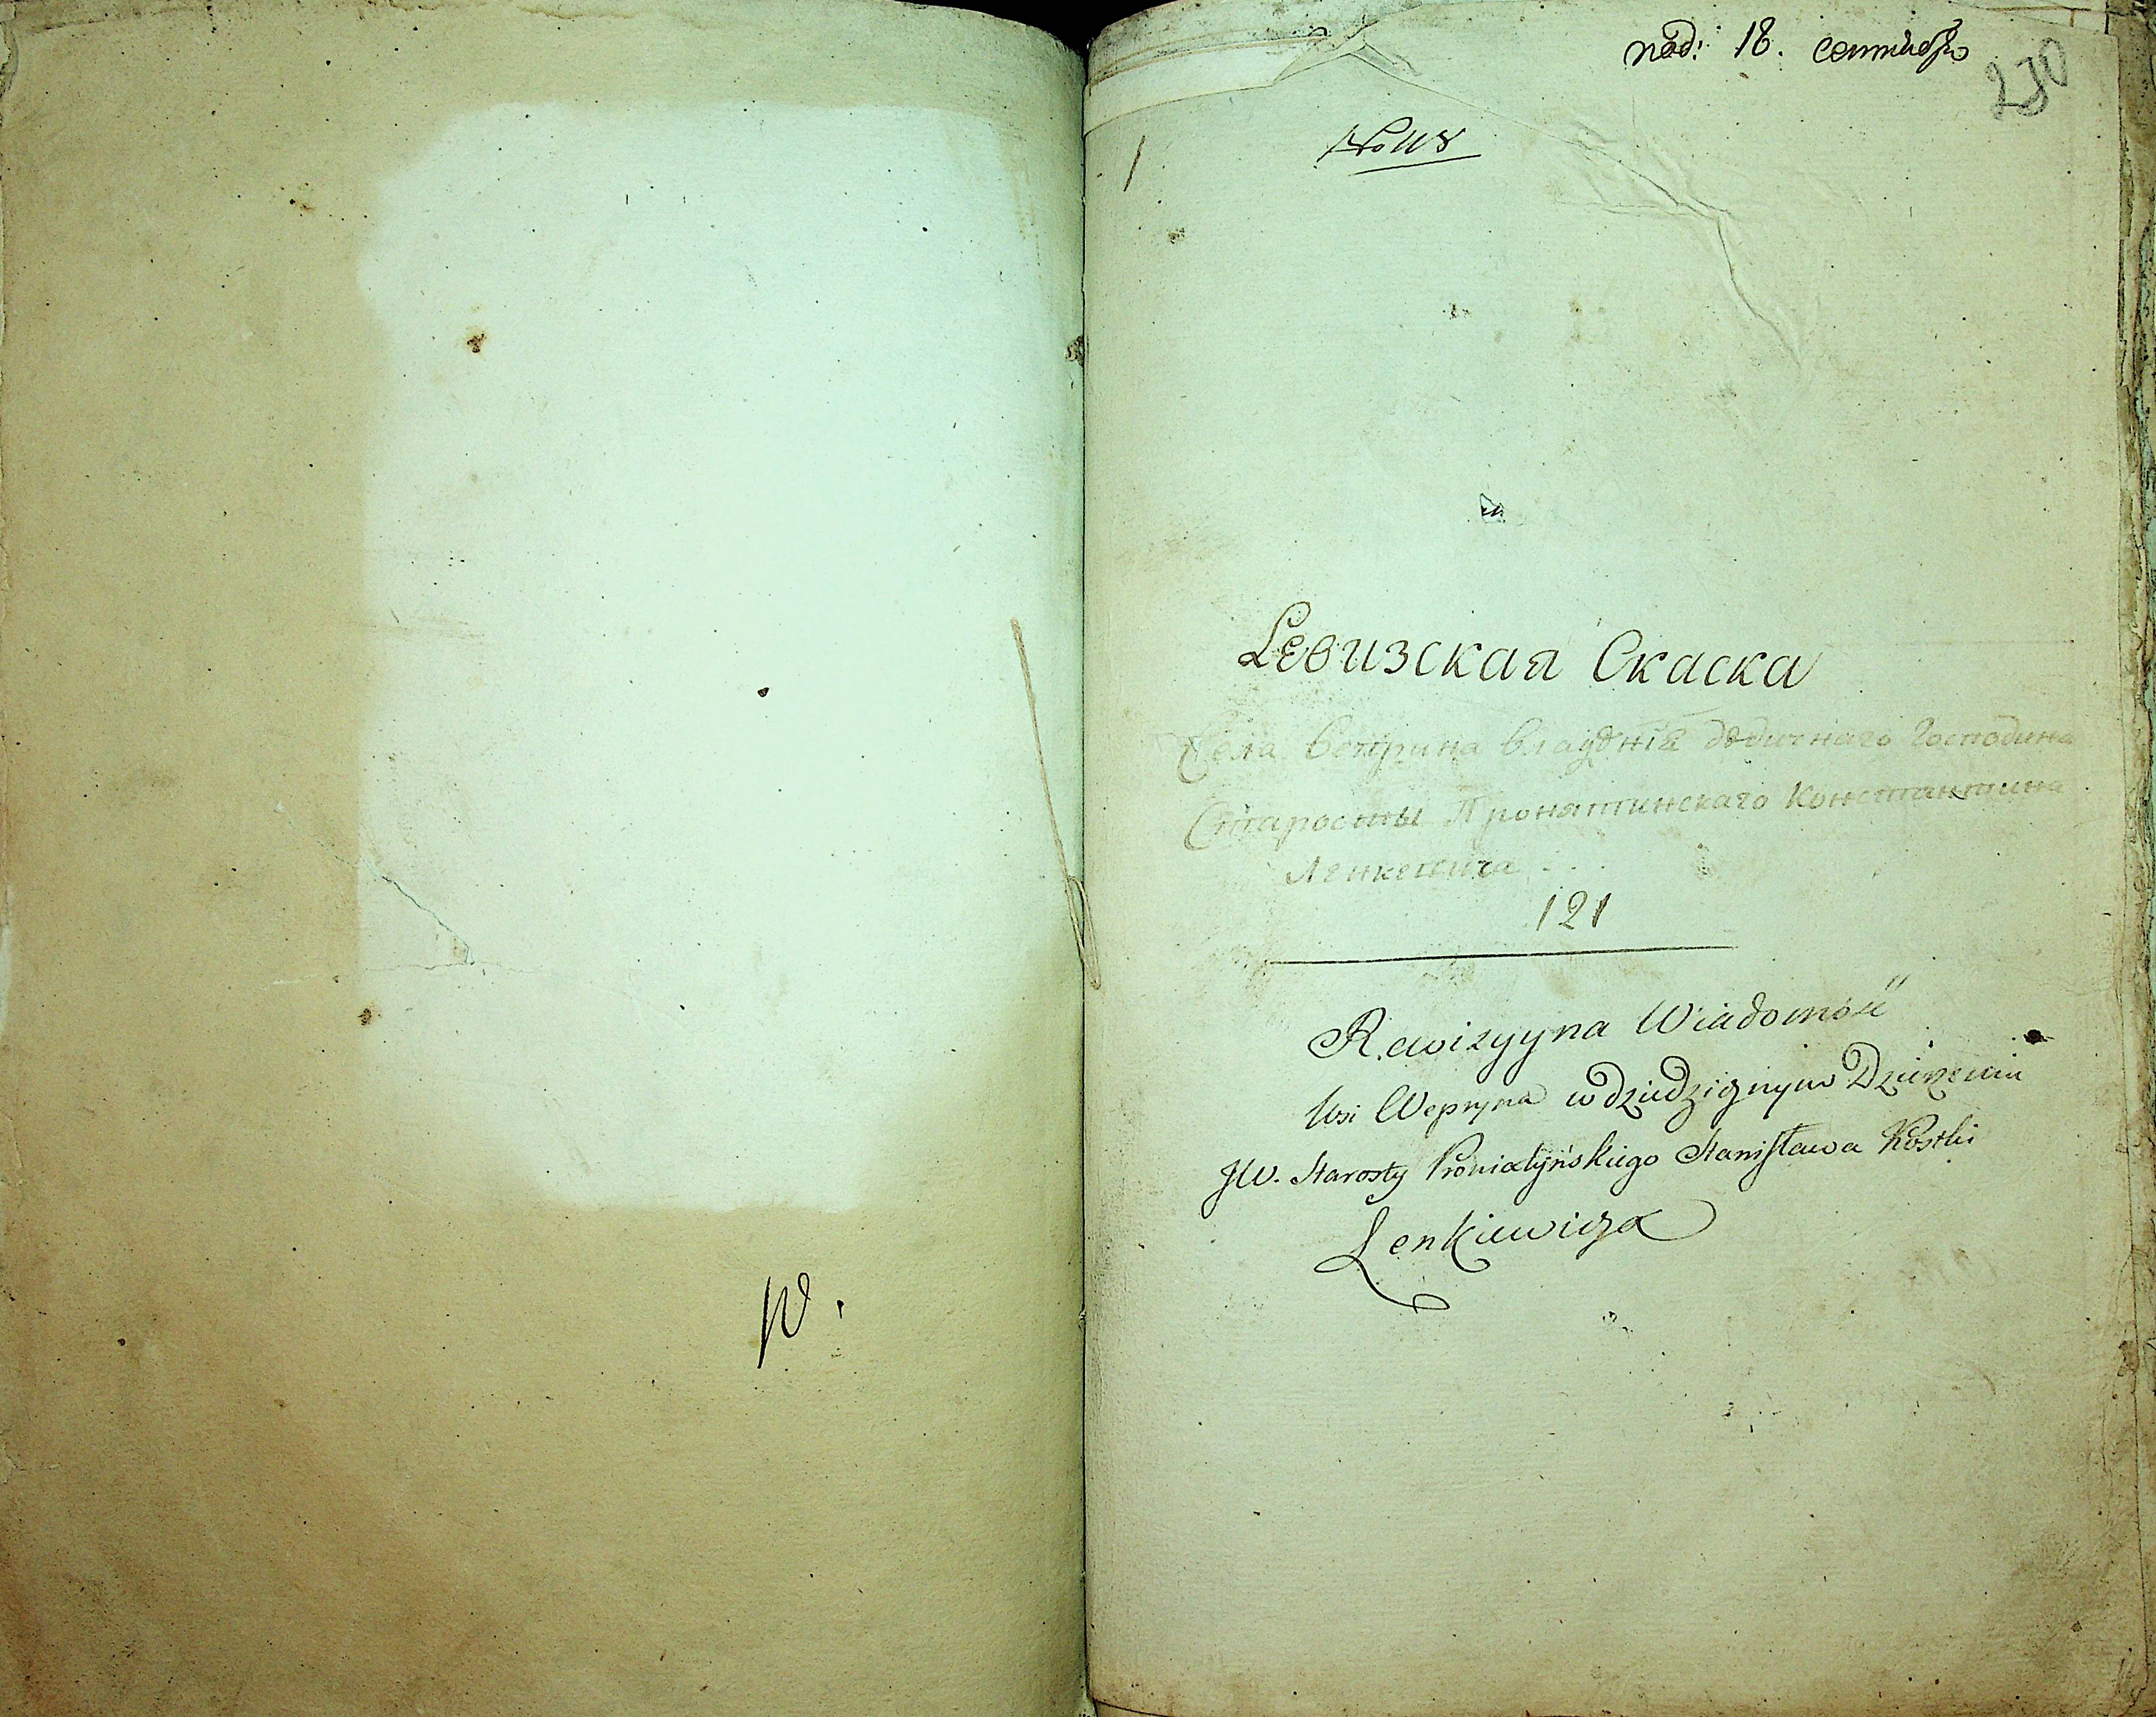 W.
под: 18. сентября
230
1
No 118
Ревизская Скаска
Села Веприна владѣнія дѣдичнаго Господина
Старосты Пронятинскаго Константина
Ленкевича
121
Rewizyyna Wiadomość
Wsi Wepryna w dziedzicznym Dzierżeniu
JW. Starosty Proniatyńskiego Stanisława Kostki
Lenkiewicza